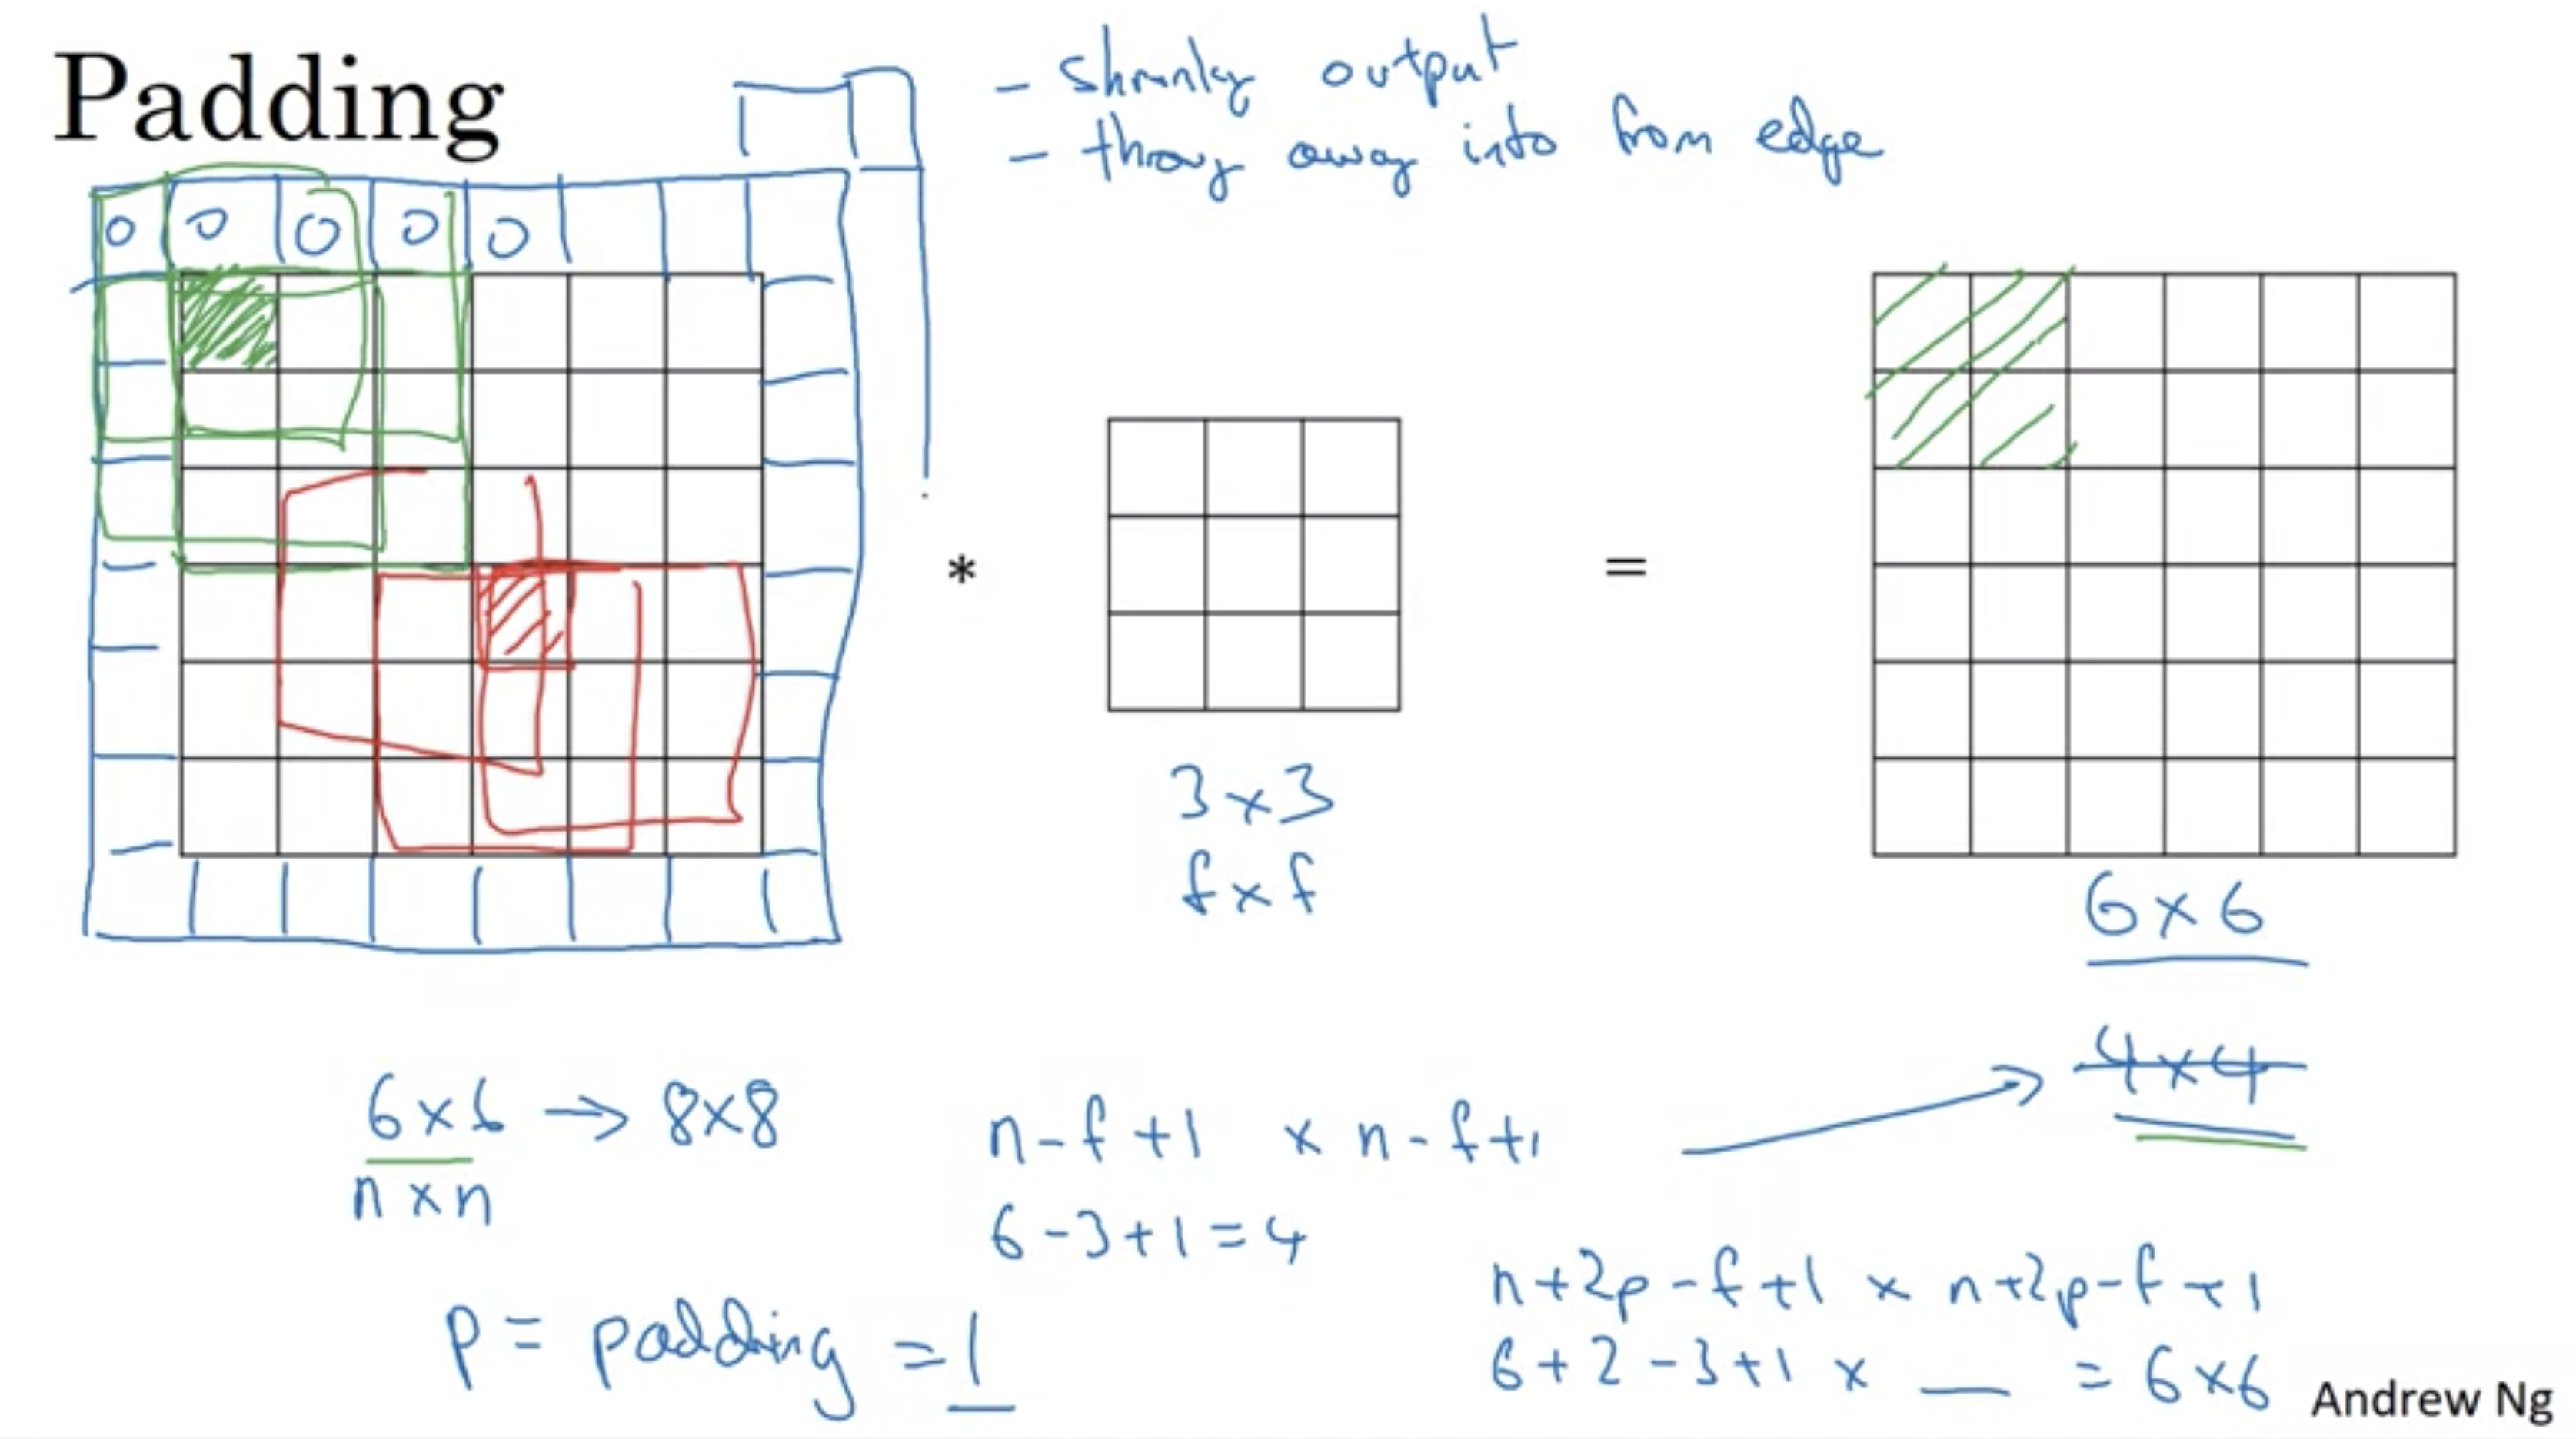 Padding
- shrinky output
- throy away into from edge
0 0 0 0 0
*
=
3 x 3
f x f
6 x 6
4 x 4
6 x 6 → 8 x 8
n x n
n - f + 1 x n - f + 1
6 - 3 + 1 = 4
p = padding = 1
n + 2p - f + 1 x n + 2p - f + 1
6 + 2 - 3 + 1 x __ = 6 x 6
Andrew Ng